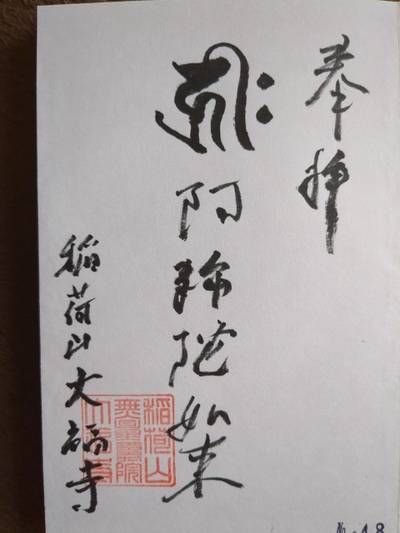 奉拝
𑖮𑖿𑖨𑖱𑖾 阿弥陀如来
稲荷山大福寺
稲荷山
無量壽院
大福寺